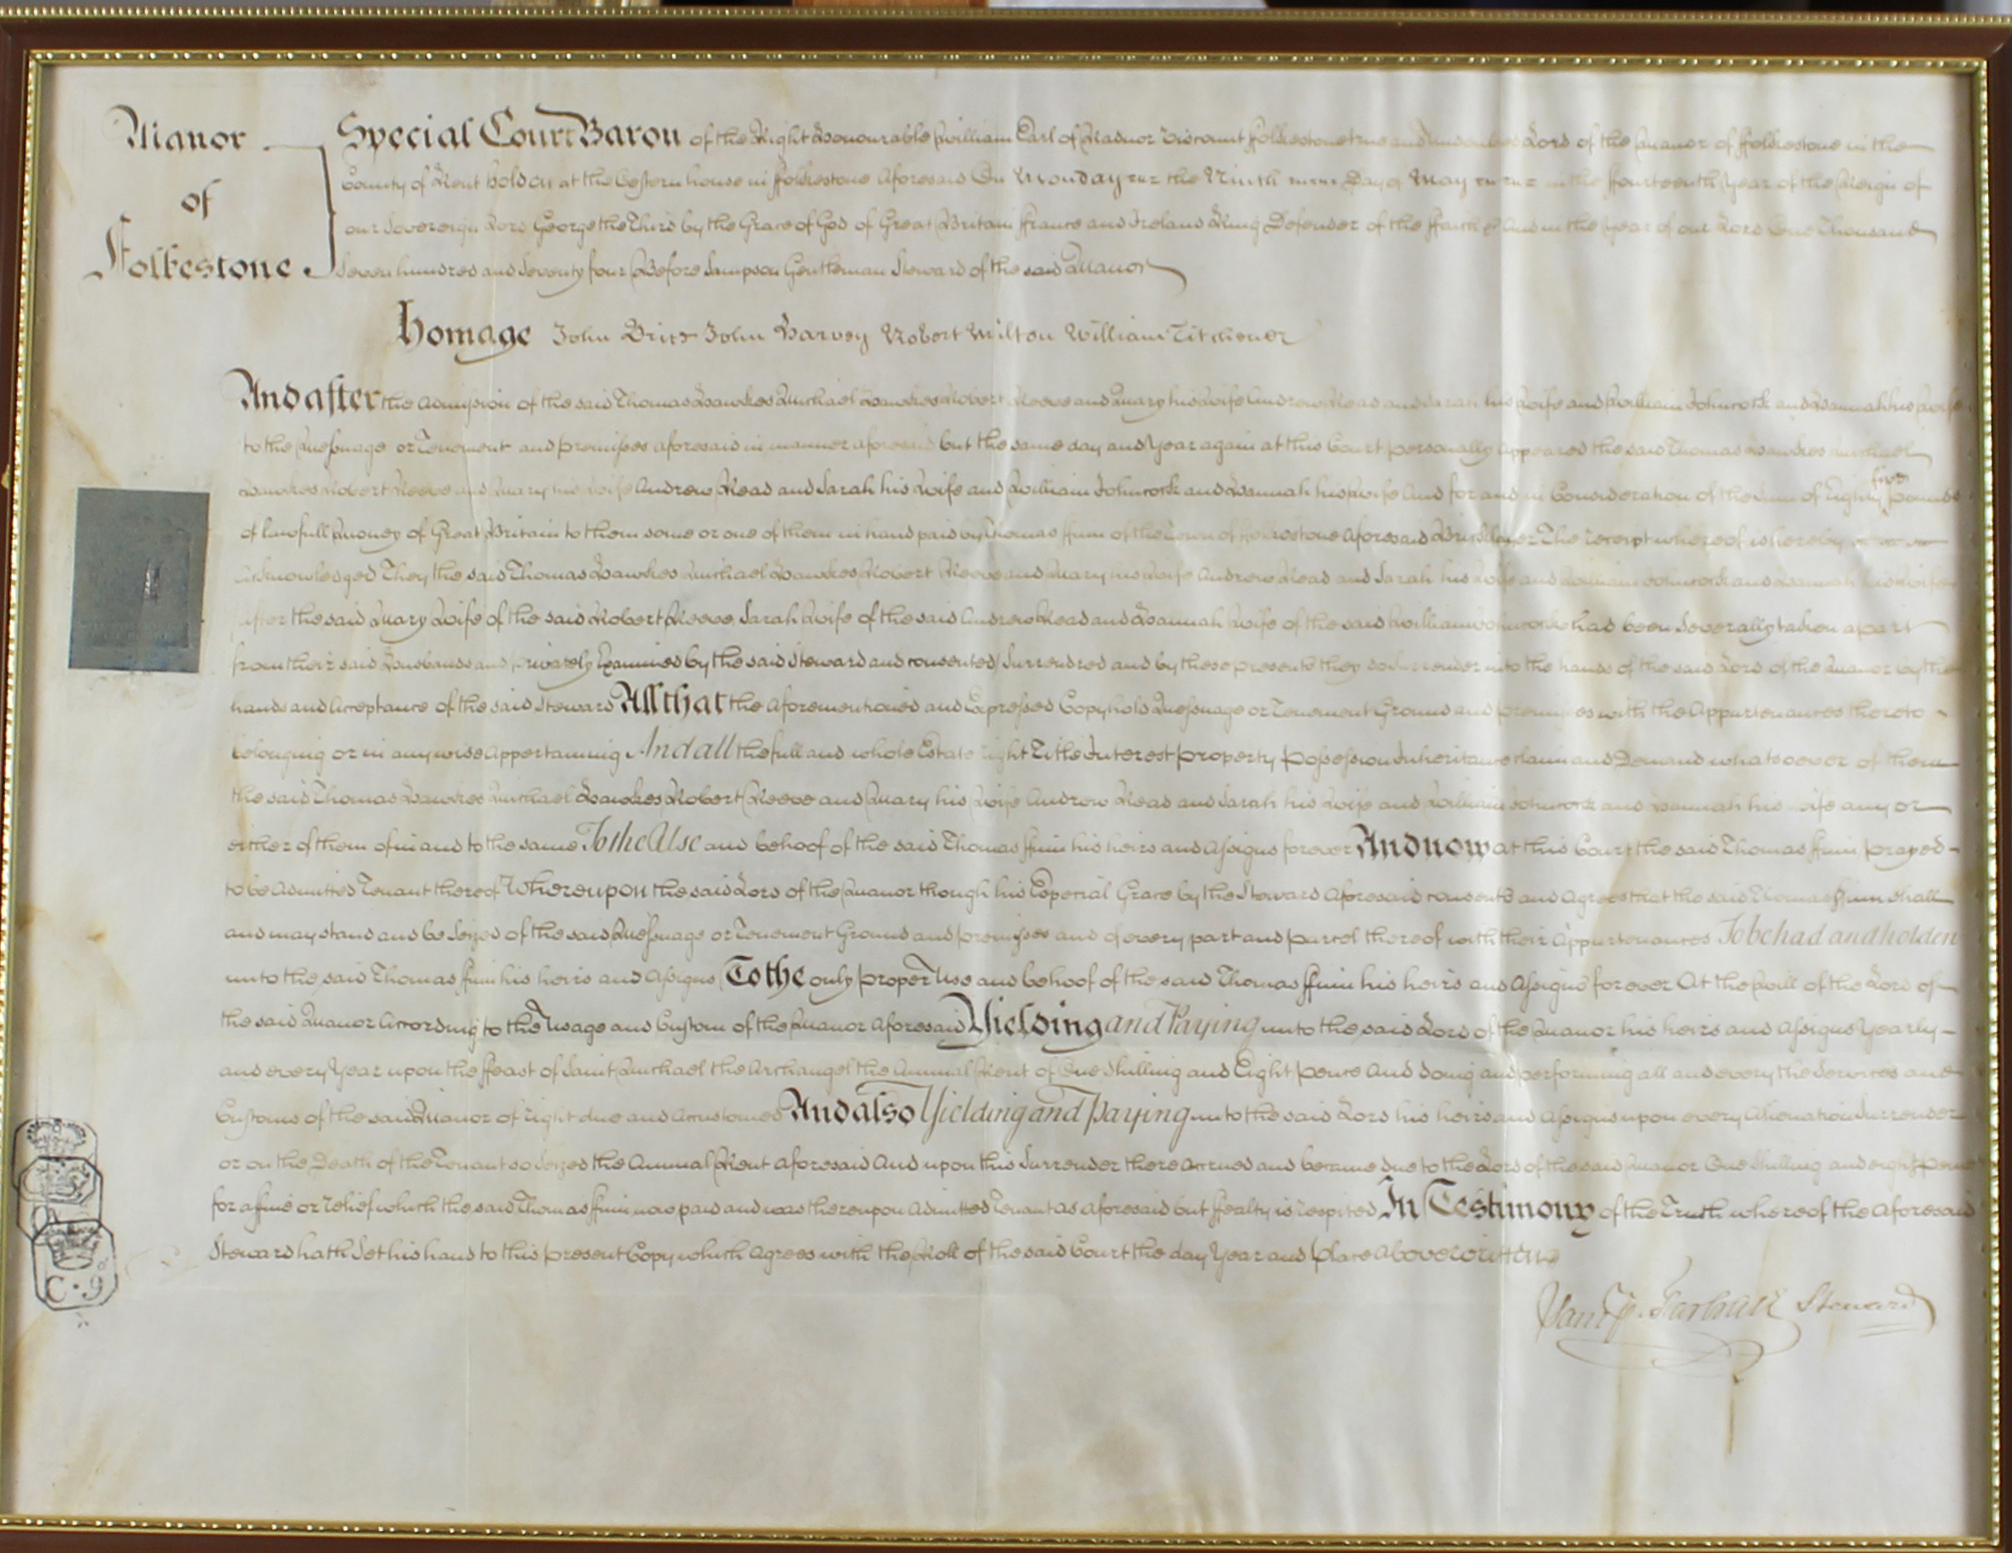 Manor of Folkestone
Special Court Baron of the Right Honourable William Earl of Radnor Viscount Folkestone true and undoubted Lord of the Manor of ffolkestone in the
County of Kent holden at the Cistern house in ffolkestone Aforesaid On Monday the Ninth Day of May in the ffourteenth Year of the Reign of
our Sovereign Lord George the Third by the Grace of God of Great Britain ffrance and Ireland King Defender of the ffaith &c And in the year of our Lord One Thousand
Seven hundred and Seventy four Before Sampson Gentleman Steward of the said Manor
Homage John Brice John Harvey Robert Milton William Titchener
And after the Admission of the said Thomas Hawkes Michael Hawkes Robert Reeve and Mary his Wife Andrew Read and Sarah his Wife and William Johncock and Hannah his Wife
to the Messuage or Tenement and premisses aforesaid in manner aforesaid but the same day and Year again at this Court personally Appeared the said Thomas Hawkes Michael
Hawkes Robert Reeve and Mary his Wife Andrew Read and Sarah his Wife and William Johncock and Hannah his Wife And for and in Consideration of the Sum of Eighty five pounds
of lawfull Money of Great Britain to them some or one of them in hand paid by Thomas ffinn of the Town of ffolkestone Aforesaid Bricklayer The receipt whereof is hereby
Acknowledged They the said Thomas Hawkes Michael Hawkes Robert Reeve and Mary his Wife Andrew Read and Sarah his Wife and William Johncock and Hannah his Wife
after the said Mary Wife of the said Robert Reeve Sarah Wife of the said Andrew Read and Hannah Wife of the said William Johncock had been Severally taken apart
from their said Husbands and privately Examined by the said Steward and consented Surrendred and by these presents they do Surrender into the hands of the said Lord of the Manor by the
hands and Acceptance of the said Steward All that the Aforementioned and Expressed Copyhold Messuage or Tenement Ground and premisses with the Appurtenances thereto
belonging or in anywise Appertaining And all the full and whole Estate right Title Interest property Possession Inheritance claim and Demand whatsoever of them
the said Thomas Hawkes Michael Hawkes Robert Reeve and Mary his Wife Andrew Read and Sarah his Wife and William Johncock and Hannah his wife any or
either of them of in and to the same To the Use and behoof of the said Thomas ffinn his heirs and Assigns forever And now at this Court the said Thomas ffinn prayed
to be Admitted Tenant thereof Whereupon the said Lord of the Manor though his Especial Grace by the Steward Aforesaid consents and Agrees that the said Thomas ffinn shall
and may stand and be Seized of the said Messuage or Tenement Ground and premisses and of every part and parcel thereof with their Appurtenances To be had and holden
unto the said Thomas ffinn his heirs and Assigns To the only proper Use and behoof of the said Thomas ffinn his heirs and Assigns forever At the Will of the Lord of
the said Manor According to the Usage and Custom of the Manor Aforesaid Yielding and Paying unto the said Lord of the Manor his heirs and Assigns Yearly
and every Year upon the ffeast of Saint Michael the Archangel the Annual Rent of One Shilling and Eight pence And doing and performing all and every the Services and
Customs of the said Manor of right due and Accustomed And also Yielding and Paying unto the said Lord his heirs and Assigns upon every Alienation Surrender
or on the Death of the Tenant so Seized the Annual Rent Aforesaid And upon this Surrender there accrued and became due to the Lord of the said Manor One Shilling and eight pence
for a ffine or relief which the said Thomas ffinn now paid and was thereupon Admitted Tenant as aforesaid but ffealty is respited In Testimony of the Truth whereof the Aforesaid
Steward hath Set his hand to this present Copy which Agrees with the Roll of the said Court the day Year and place Abovewritten
Steward
C·9